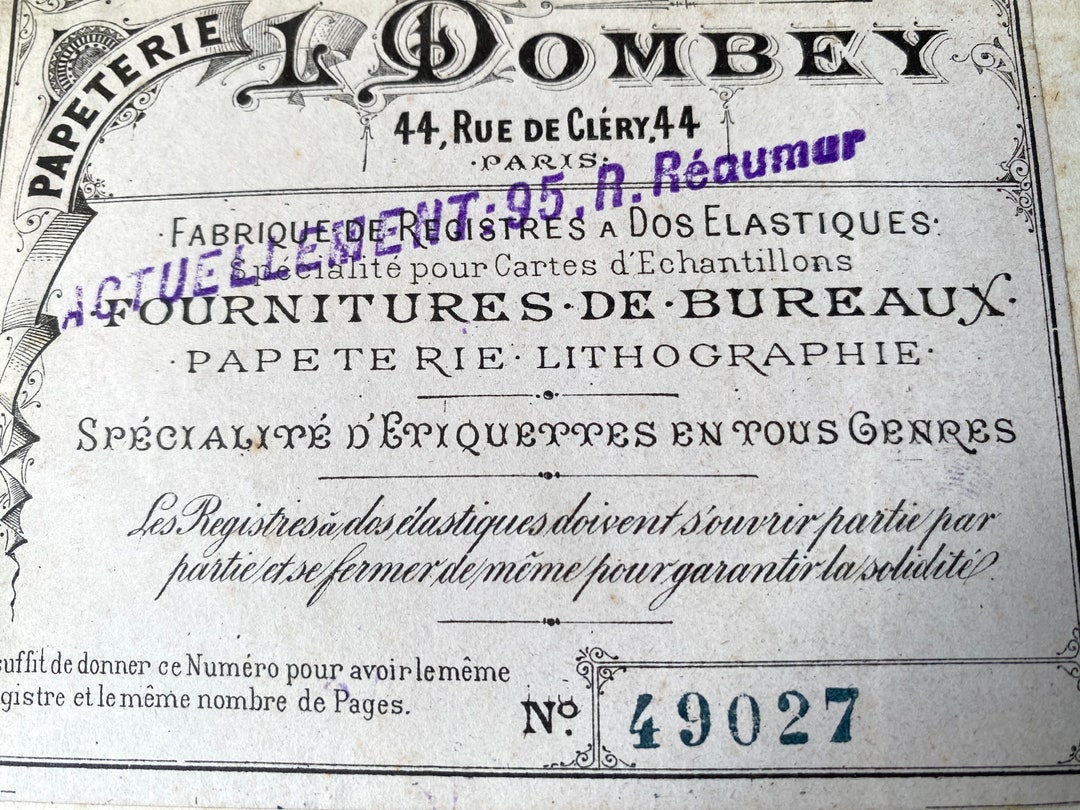 PAPETERIE
L. DOMBEY
44, RUE DE CLÉRY, 44
·PARIS·
ACTUELLEMENT: 95, R. Réaumur
·FABRIQUE DE REGISTRES A DOS ELASTIQUES·
Spécialité pour Cartes d'Echantillons
·FOURNITURES·DE·BUREAUX·
·PAPETERIE·LITHOGRAPHIE·
SPÉCIALITÉ D'ÉTIQUETTES EN TOUS GENRES
Les Registres à dos élastiques doivent s'ouvrir partie par
partie et se fermer de même pour garantir la solidité.
suffit de donner ce Numéro pour avoir le même
gistre et le même nombre de Pages.
No. 49027